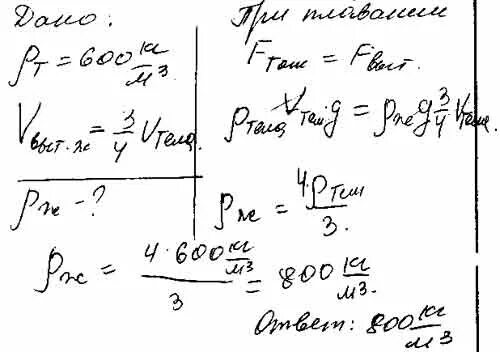 Дано:
ρт = 600 кг/м³.
Vвыт.ж = 3/4 Vтела.
ρж - ?
При плавании
Fтяж = Fвыт.
ρтела Vтела g = ρж g 3/4 Vтела.
ρж = 4·ρтела/3.
ρж = 4·600 кг/м³ / 3 = 800 кг/м³.
Ответ: 800 кг/м³